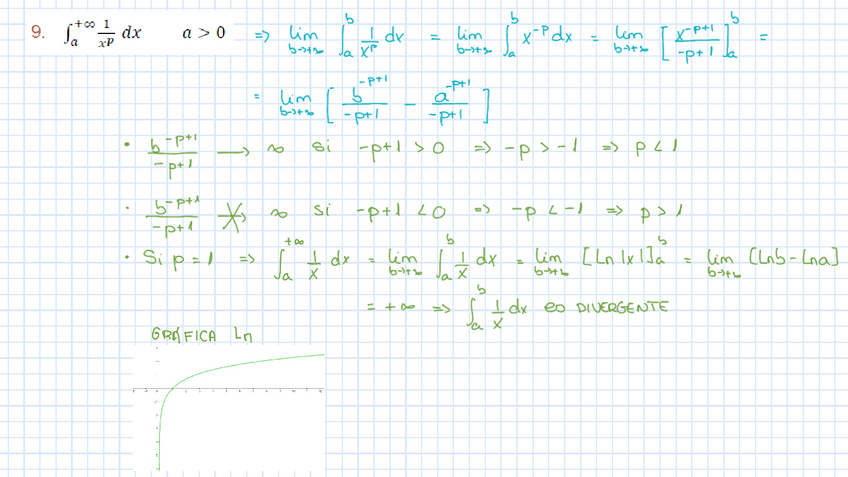 9. ∫ₐ^{+∞} 1/x^p dx    a > 0 => lim_{b→+∞} ∫ₐ^b 1/x^p dx = lim_{b→+∞} ∫ₐ^b x^{-p} dx = lim_{b→+∞} [x^{-p+1}/(-p+1)]ₐ^b =
= lim_{b→+∞} [b^{-p+1}/(-p+1) - a^{-p+1}/(-p+1)]
• b^{-p+1}/(-p+1) → ∞ si -p+1 > 0 => -p > -1 => p < 1
• b^{-p+1}/(-p+1) ↛ ∞ si -p+1 < 0 => -p < -1 => p > 1
• Si p = 1 => ∫ₐ^{+∞} 1/x dx = lim_{b→+∞} ∫ₐ^b 1/x dx = lim_{b→+∞} [Ln|x|]ₐ^b = lim_{b→+∞} [Lnb - Lna]
= +∞ => ∫ₐ^b 1/x dx es DIVERGENTE
GRÁFICA Ln